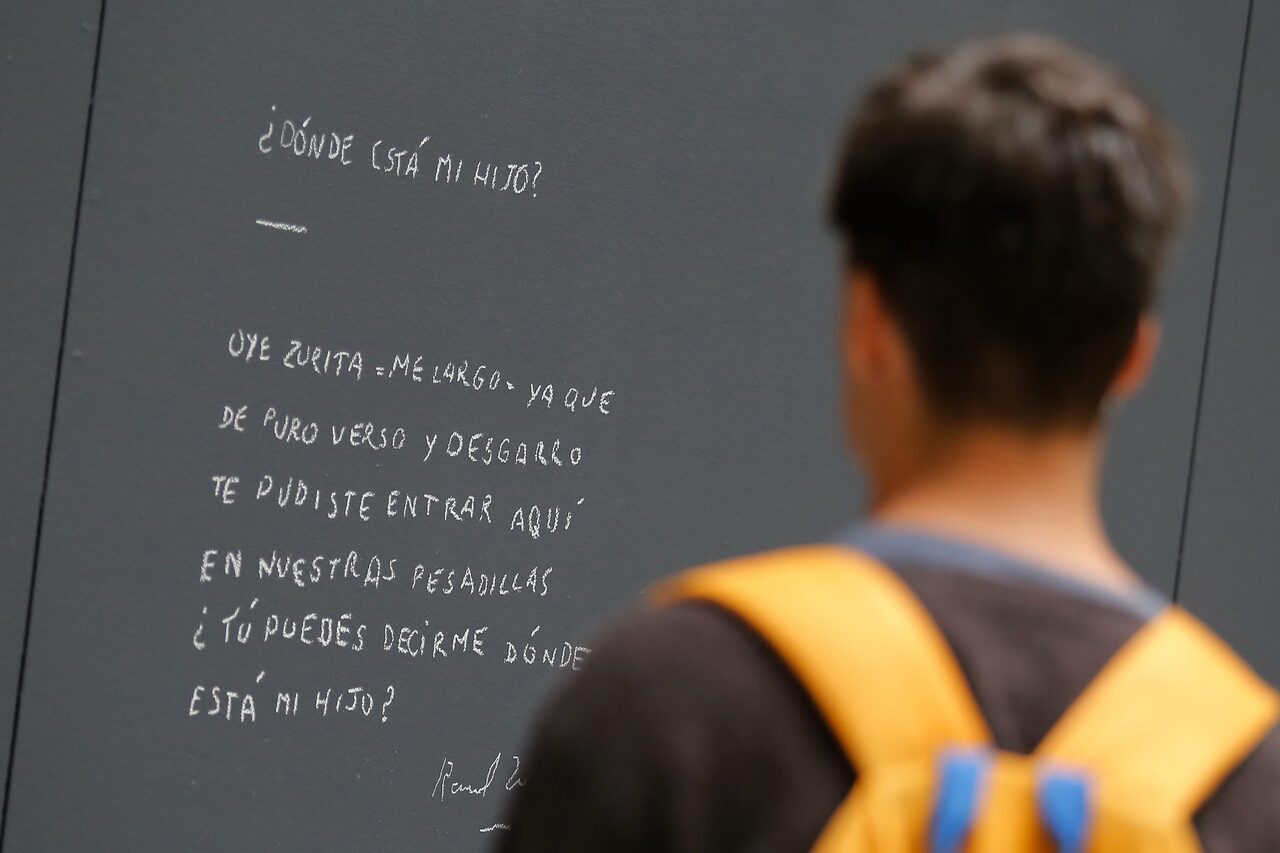 ¿DÓNDE ESTÁ MI HIJO?
OYE ZURITA - ME LARGO - YA QUE
DE PURO VERSO Y DESGARRO
TE PUDISTE ENTRAR AQUÍ
EN NUESTRAS PESADILLAS
¿TÚ PUEDES DECIRME DÓNDE
ESTÁ MI HIJO?
Raúl